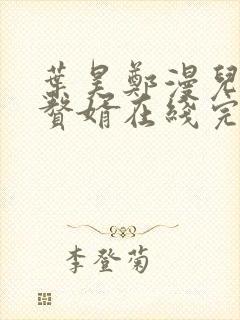 葉昊鄭漫兒
贅婿在綫完
李登菊